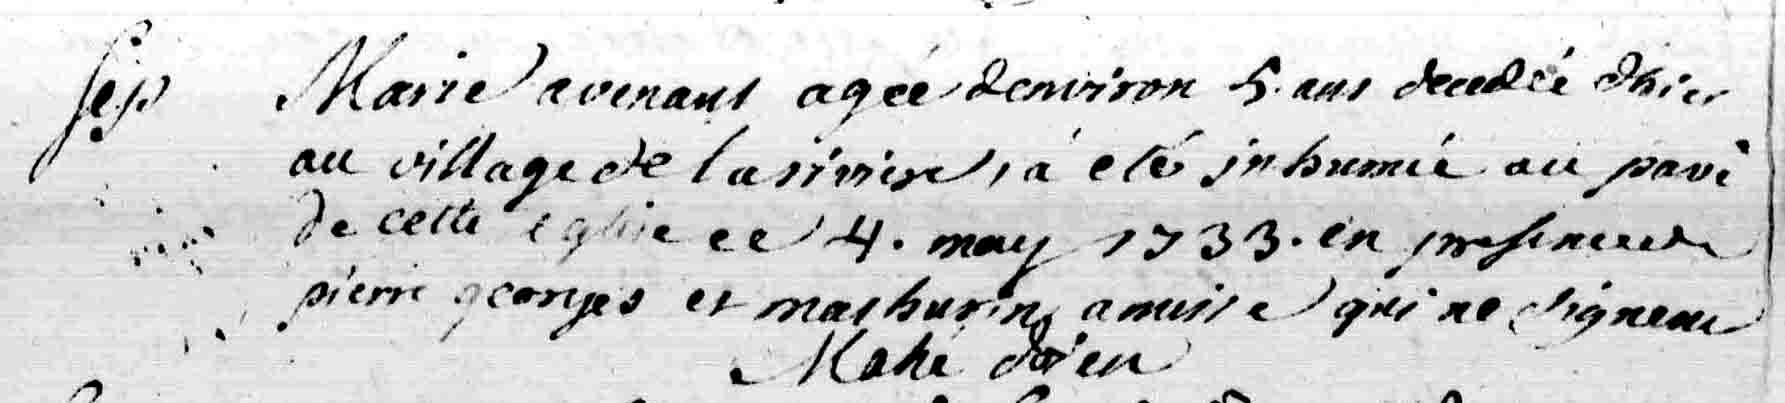 sep Marie avenant agée denviron 5. ans decedée dhier
au village de la riviere, a eté inhumée au pavé
de cette eglise ce 4. may 1733. en presence de
pierre georges et mathurin qui ne signent
Mahé doïen